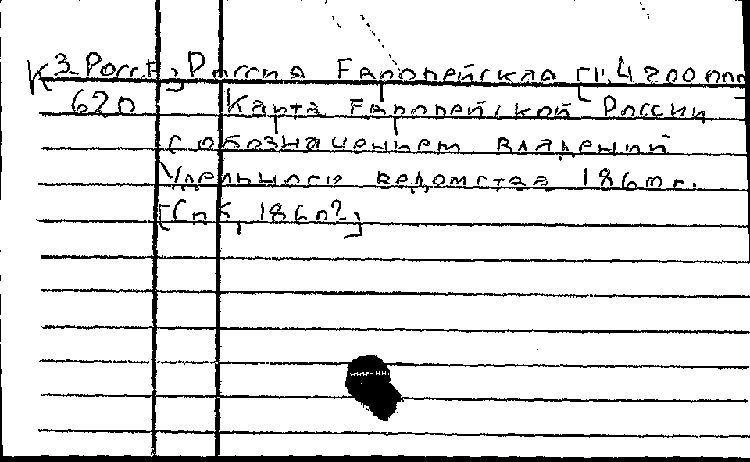 К 3-Росс.Е, Россия Европейская [1:4 200 000]
620 Карта Европейской России
с обозначением владений
Удельного ведомства 1860 г.
[Спб, 1860?]